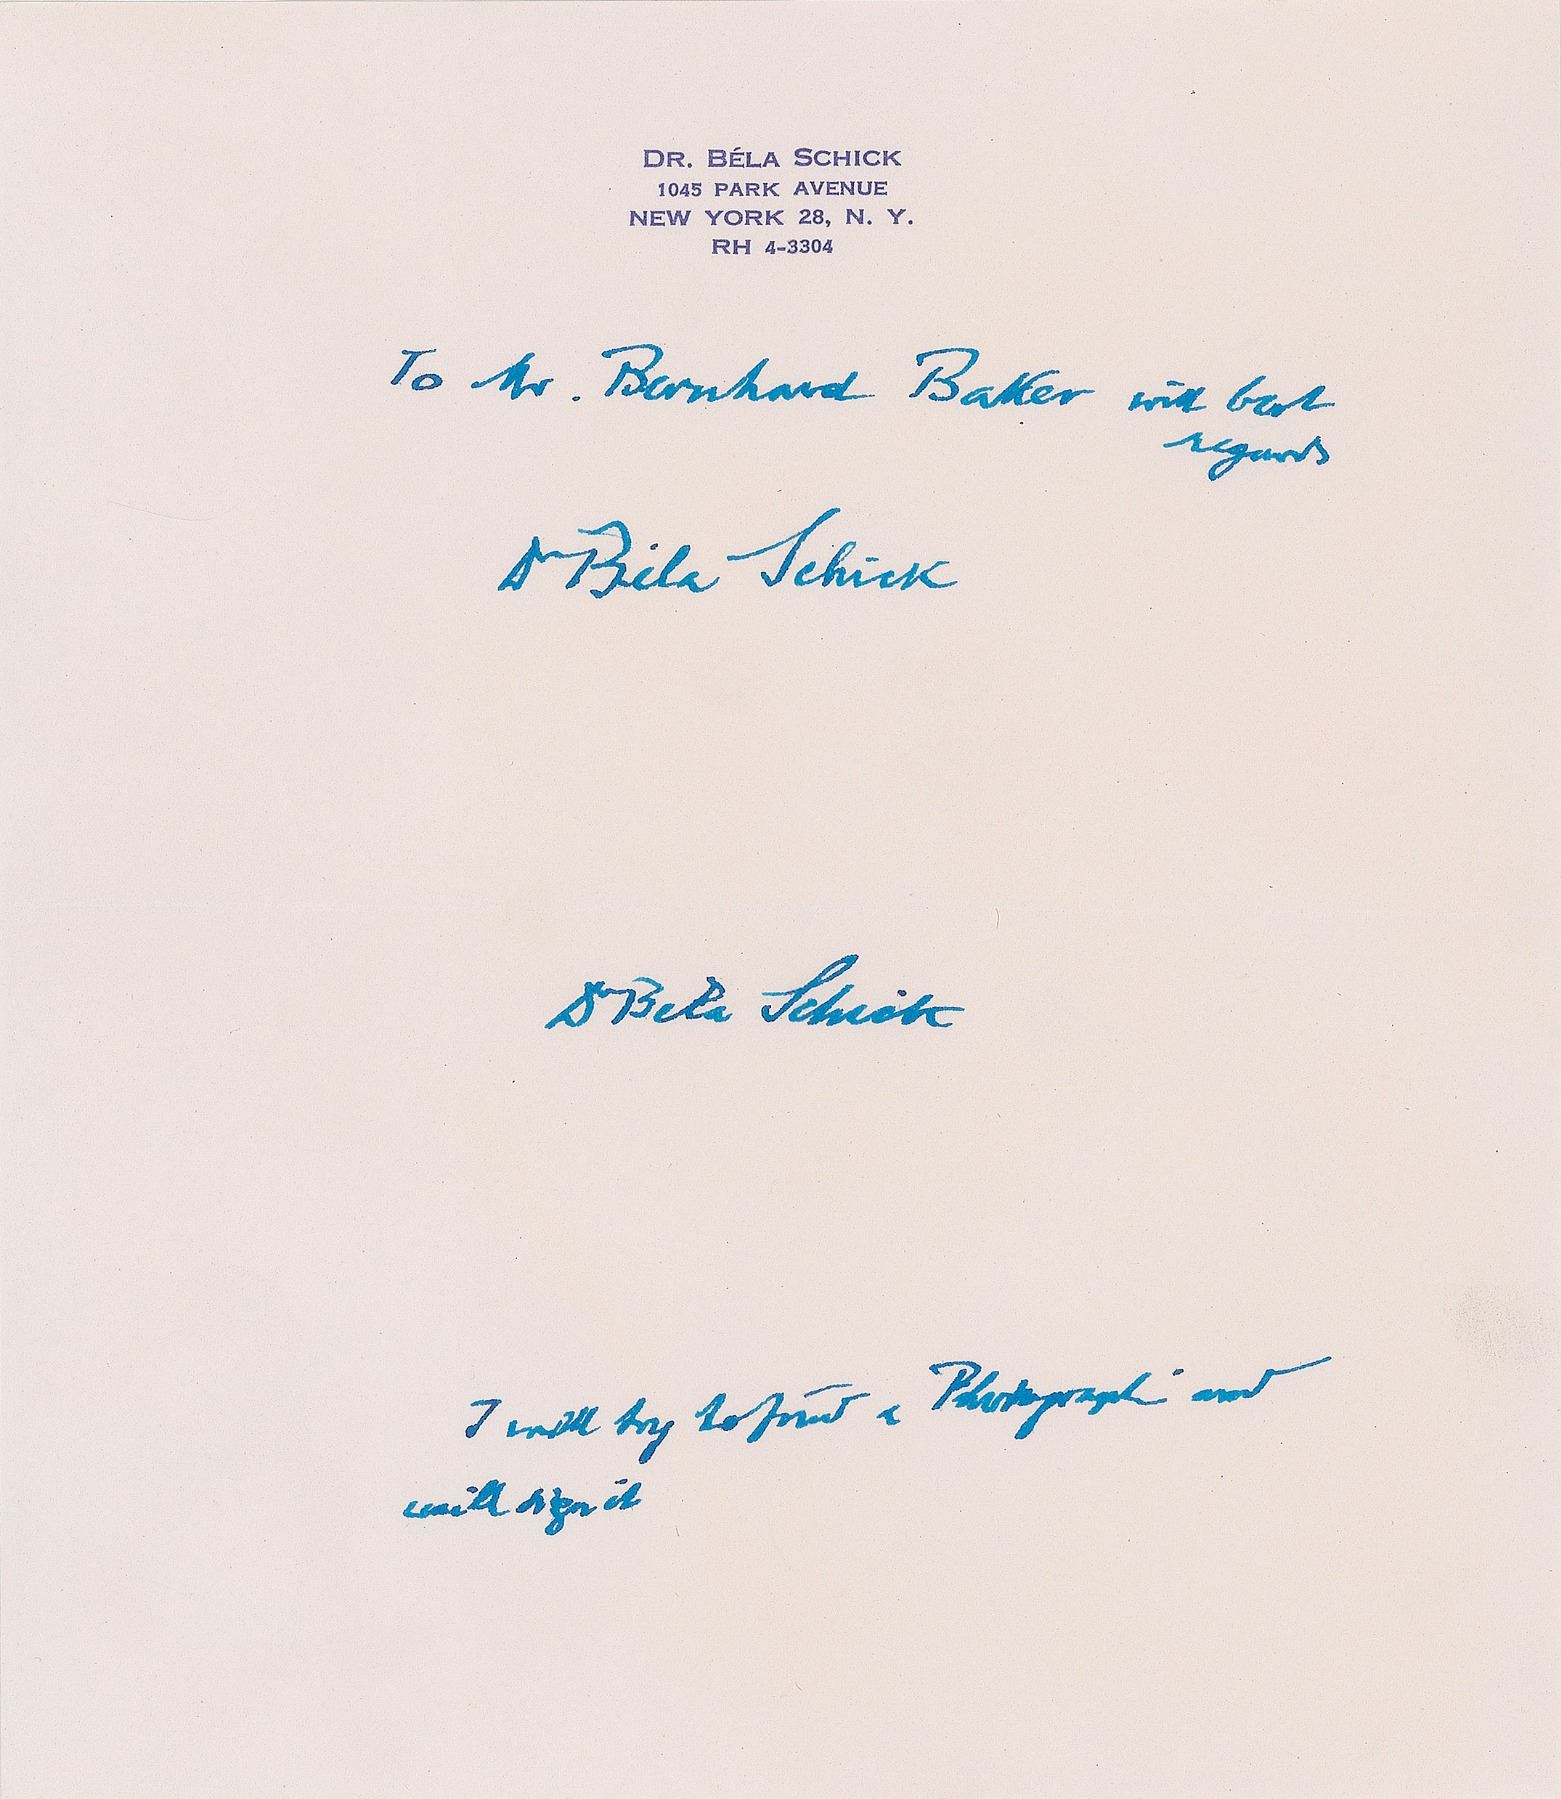 DR. BÉLA SCHICK
1045 PARK AVENUE
NEW YORK 28, N. Y.
RH 4-3304
To Mr. Bernhard Baker with best
regards
Dr Béla Schick
Dr Bela Schick
I will try to find a Photograph and
will sign it